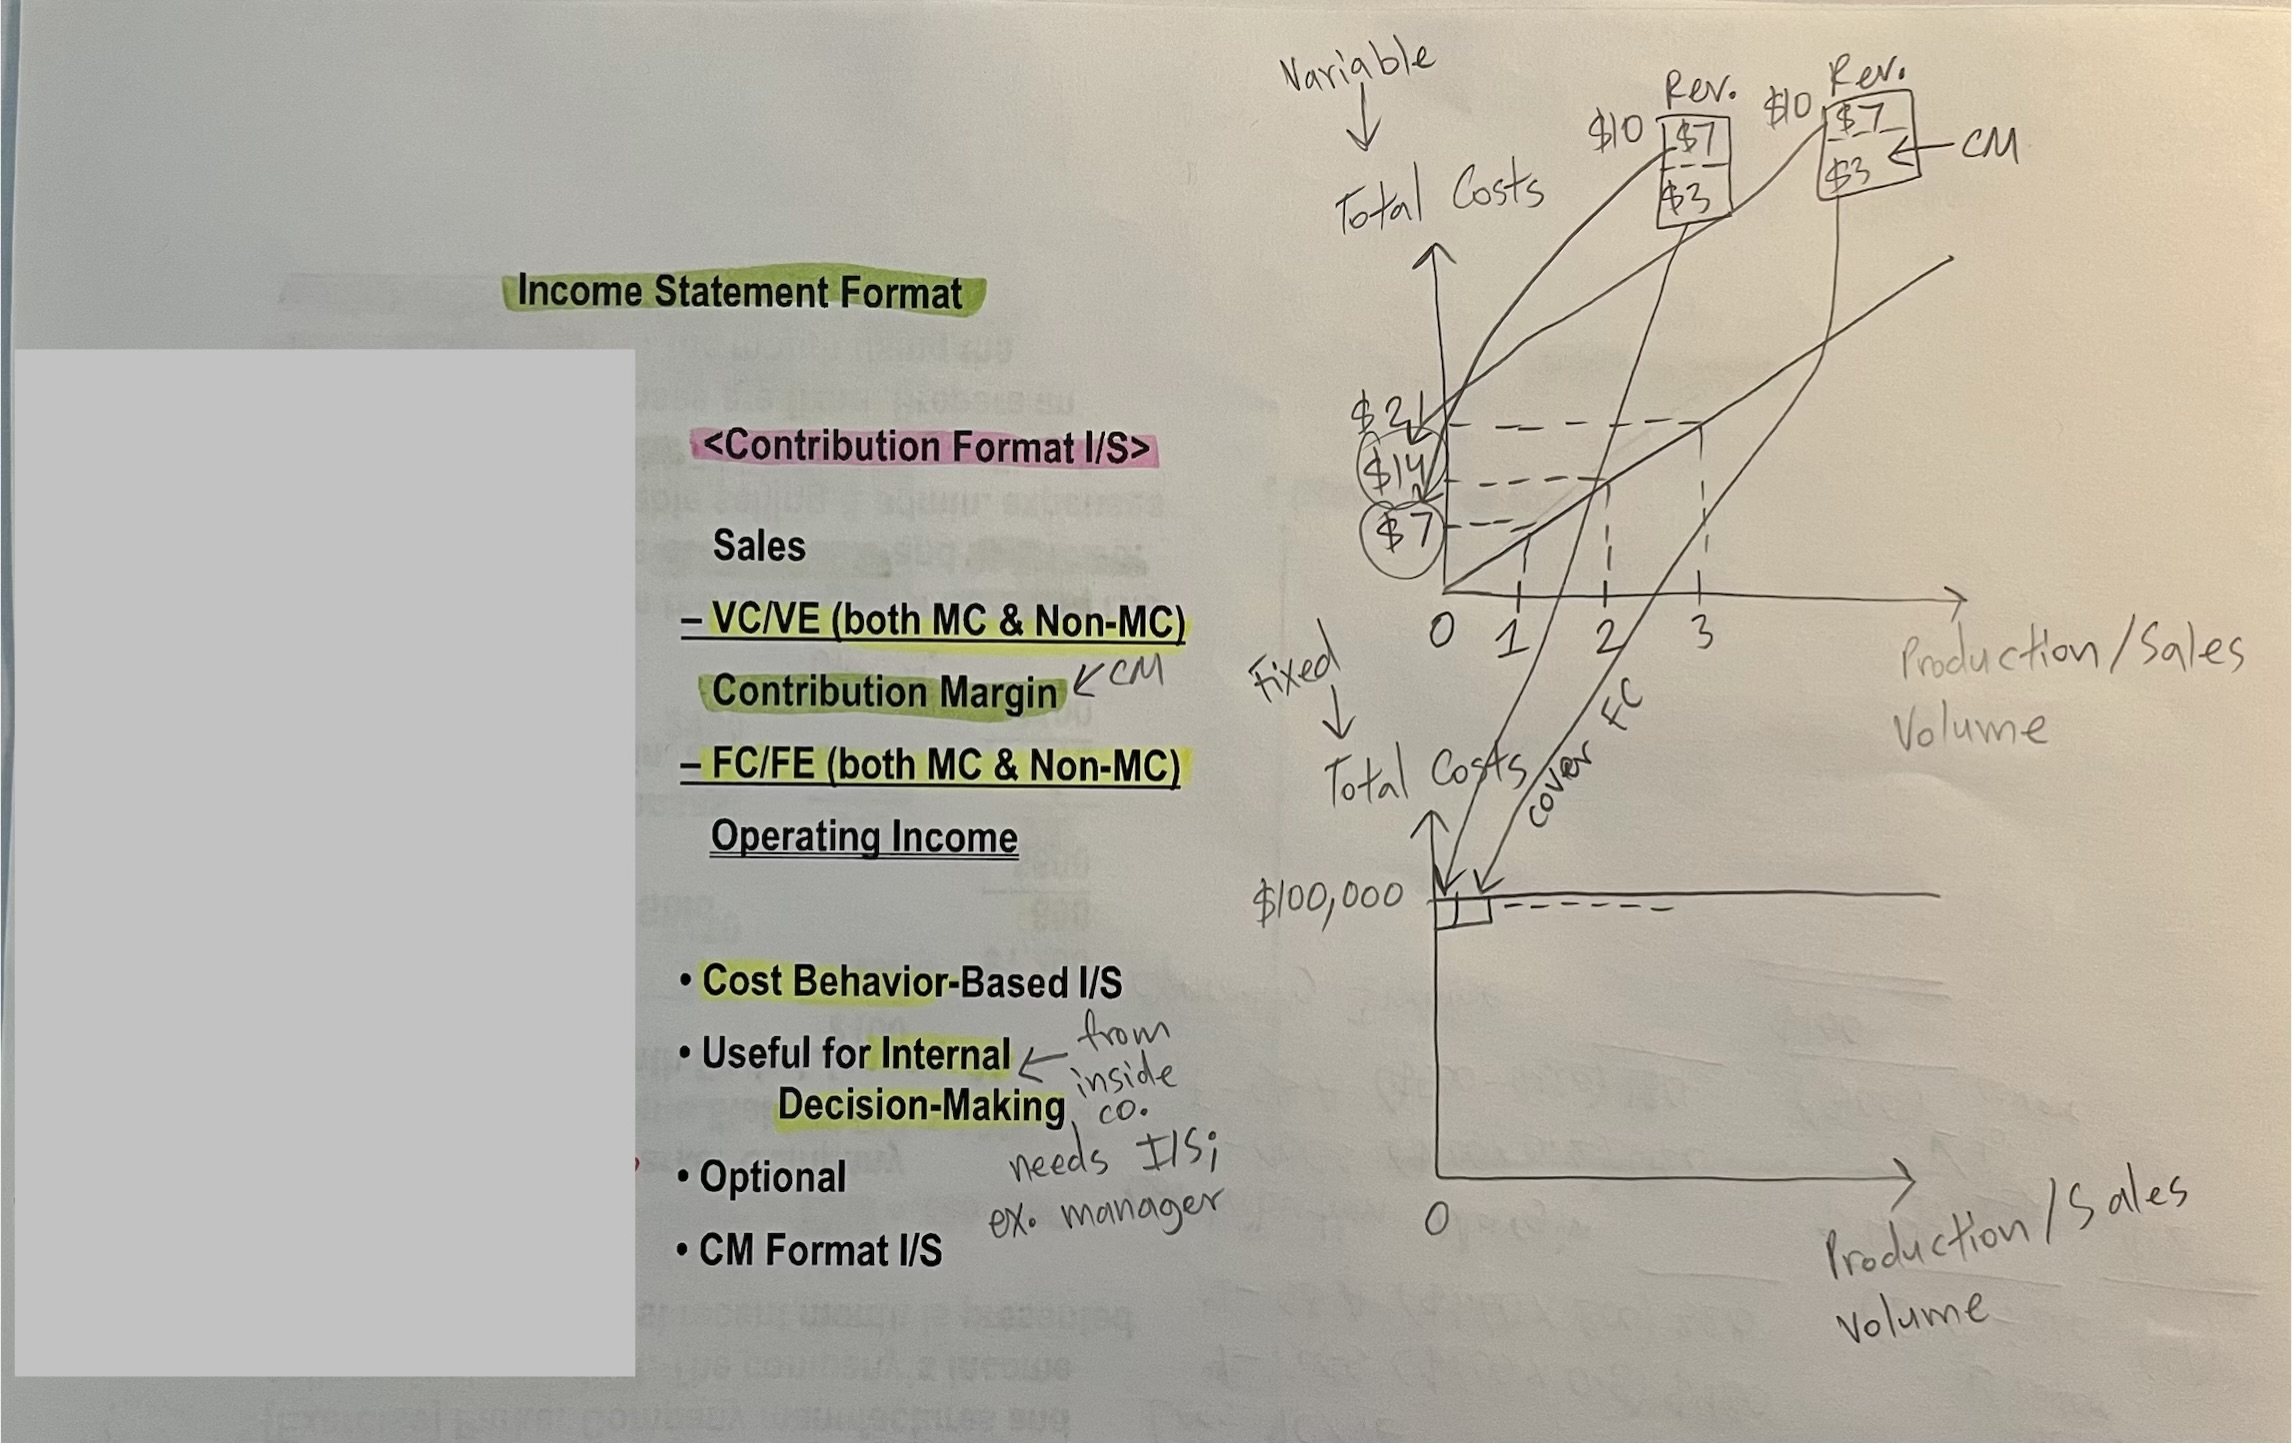 Income Statement Format
<Contribution Format I/S>
Sales
– VC/VE (both MC & Non-MC)
Contribution Margin ← CM
– FC/FE (both MC & Non-MC)
Operating Income
• Cost Behavior-Based I/S
• Useful for Internal
Decision-Making
← from
inside
co.
needs I/S;
ex. manager
• Optional
• CM Format I/S
Variable
↓
Total Costs
Rev.
$10 $7
$3
Rev.
$10 $7
$3
← CM
$21
$14
$7
0 1 2 3
Production/Sales
Volume
Fixed
↓
Total Costs
cover FC
$100,000
0
Production/Sales
Volume